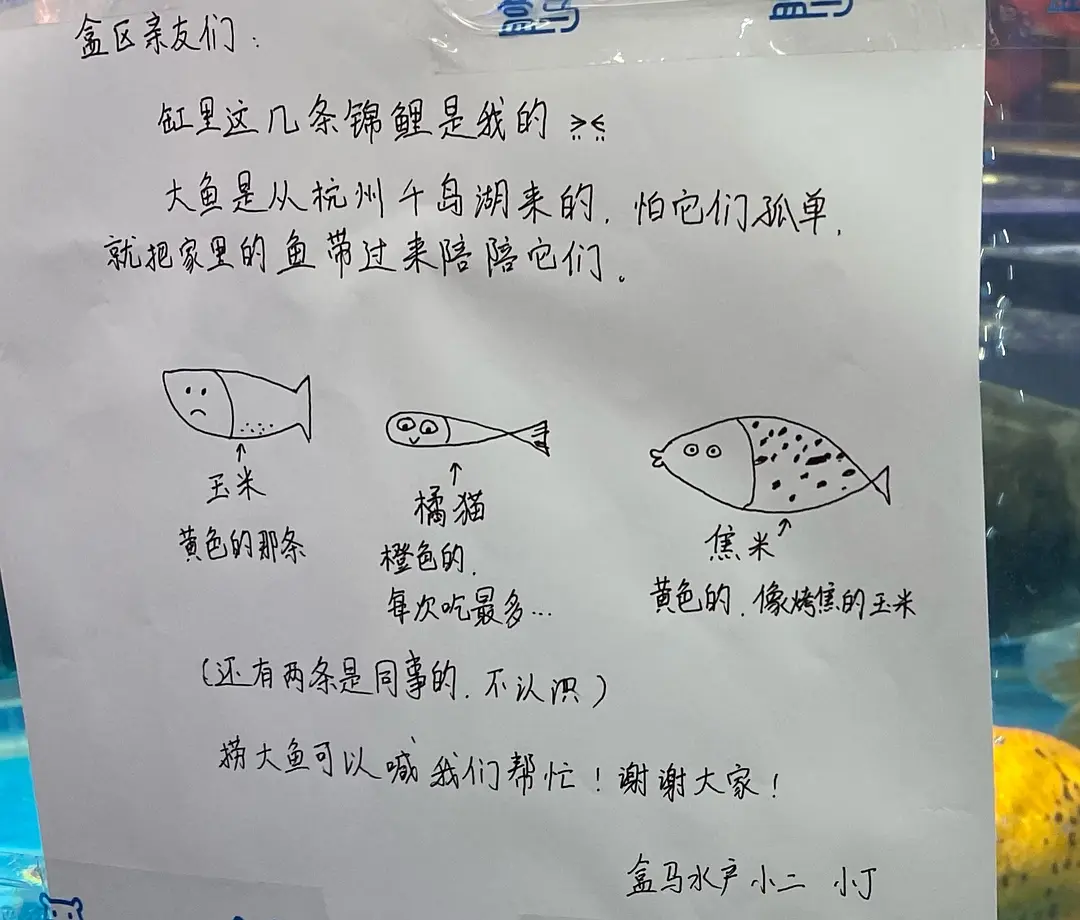 盒马
盒马
盒区亲友们：
缸里这几条锦鲤是我的 ><
大鱼是从杭州千岛湖来的，怕它们孤单，
就把家里的鱼带过来陪陪它们。
玉米
黄色的那条
橘猫
橙色的，
每次吃最多…
焦米
黄色的，像烤焦的玉米
（还有两条是同事的，不认识）
捞大鱼可以喊我们帮忙！谢谢大家！
盒马水产小二 小丁